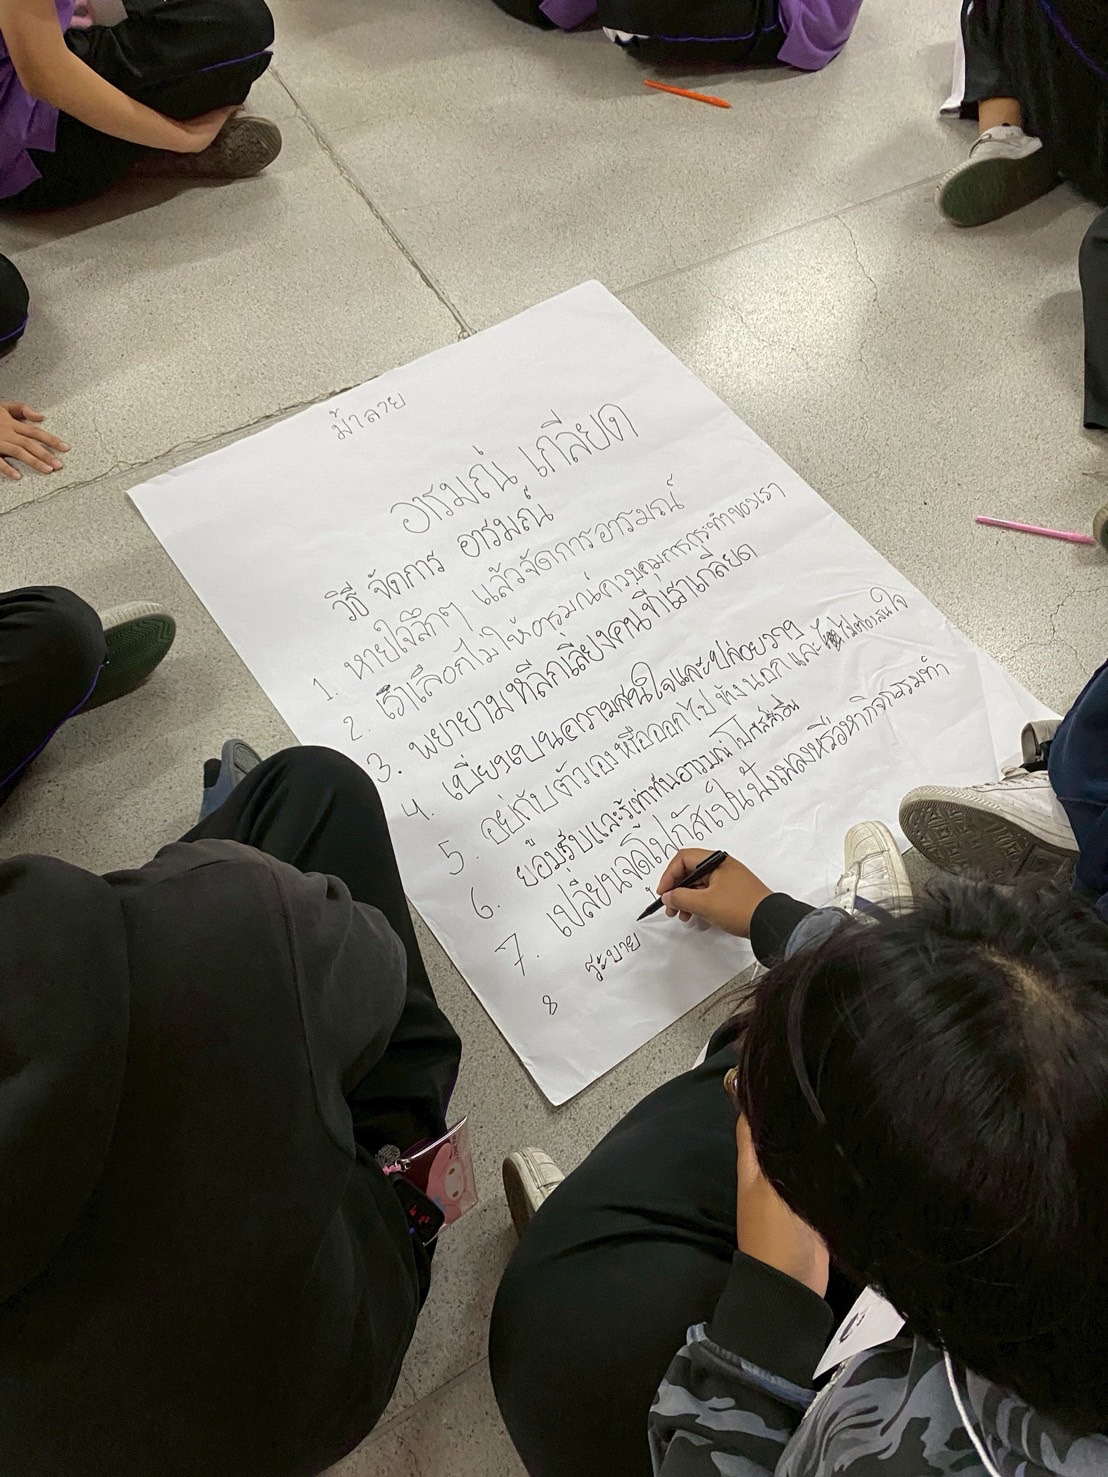 ม้าลาย
อารมณ์ เกลียด
วิธี จัดการ อารมณ์
1. หายใจลึกๆ แล้วจัดการอารมณ์
2. เราเลือกไม่ให้อารมณ์ควบคุมการกระทำของเรา
3. พยายามหลีกเลี่ยงคนที่เราเกลียด
4. เบี่ยงเบนความสนใจและปล่อยวาง
5. อยู่กับตัวเองเพื่อออกไปข้างนอกและไม่ต้องสนใจ
6. ยอมรับและรู้เท่าทันอารมณ์
7. เปลี่ยนจุดโฟกัสเป็นฟังเพลงหรือหากิจกรรมทำ
8 ระบาย